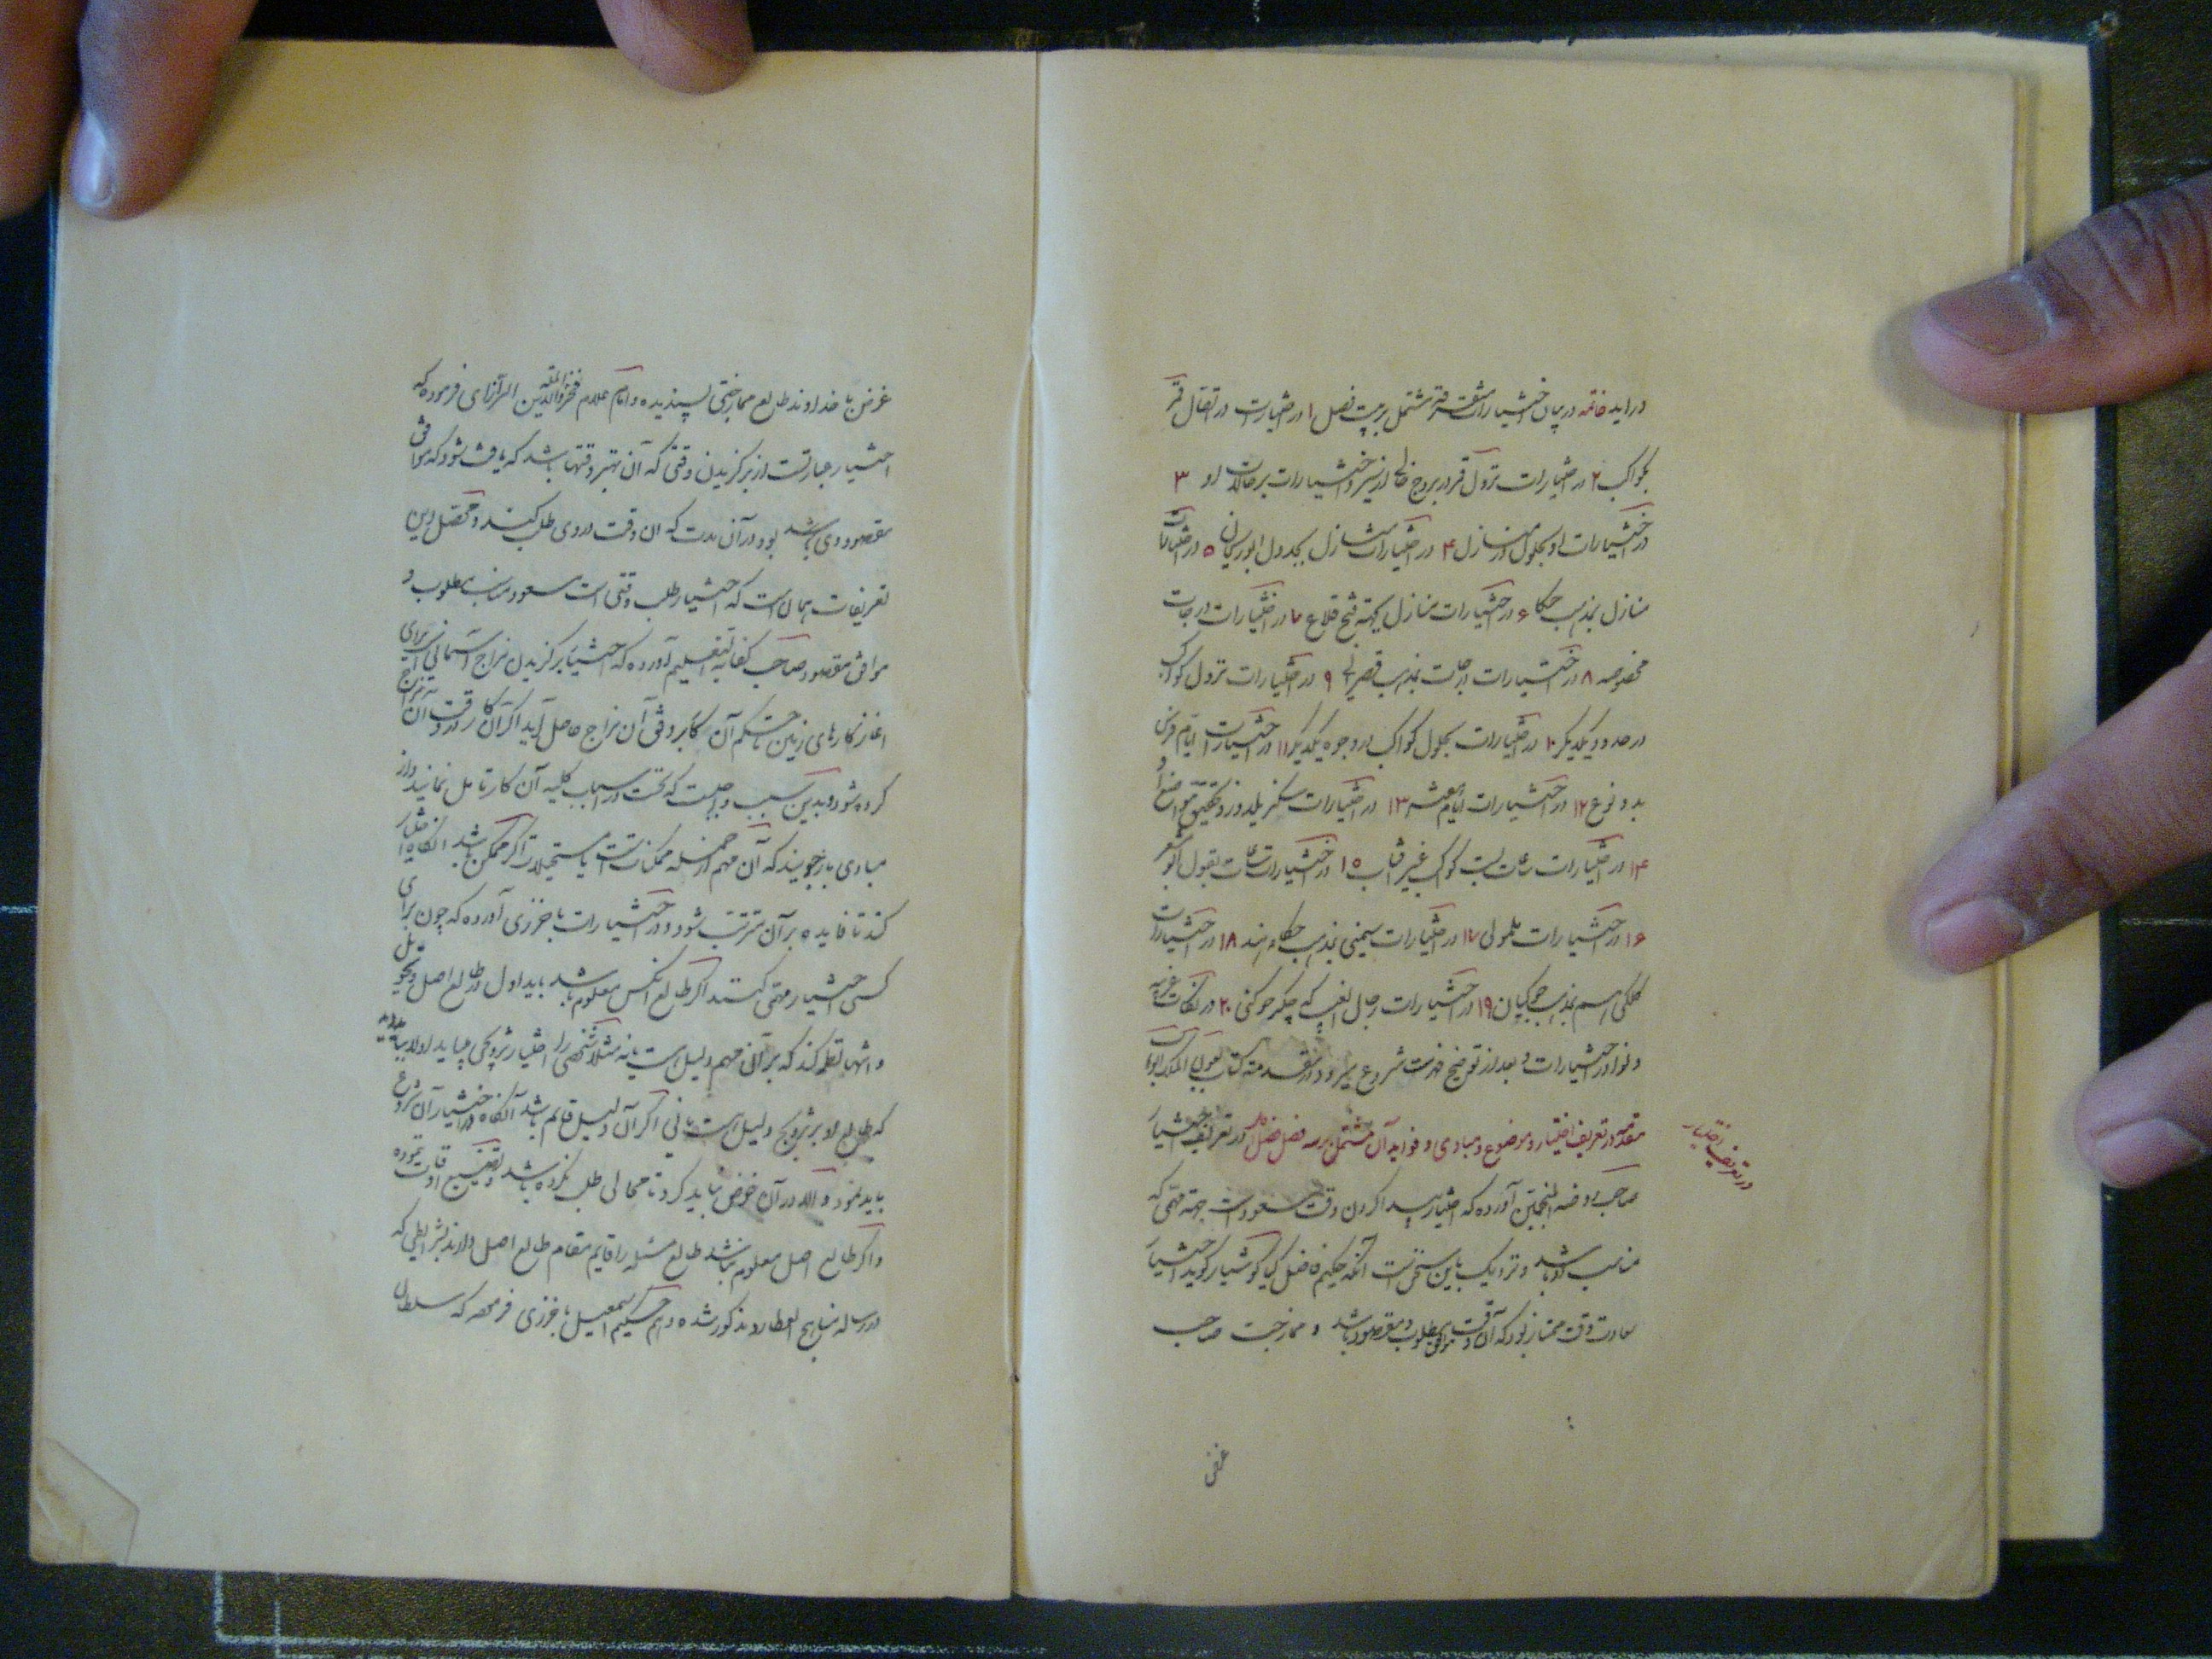 در آید خاتمه در بیان اختیارات متفرقه مشتمل بر بیست فصل ۱ در اختیارات در اتصال قمر
بکواکب ۲ در اختیارات نزول قمر در بروج خالی از سیر و اختیارات بر حالات او ۳
در اختیارات او بحلول در منازل ۴ در اختیارات منازل بجدول ابوریحان ۵ در اختیارات
منازل بمذهب حکما ۶ در اختیارات منازل بجهة فتح قلاع ۷ در اختیارات درجات
مخصوصه ۸ در اختیارات درجات بمذهب ۹ در اختیارات نزول کواکب
در حدود یکدیگر ۱۰ در اختیارات بحلول کواکب در وجوه یکدیگر ۱۱ در اختیارات ایام فرس
بدو نوع ۱۲ در اختیارات ایام ۱۳ در اختیارات سکز یلدوز و تحقیق مواضع او
۱۴ در اختیارات ساعات بست کواکب غیر آفتاب ۱۵ در اختیارات ساعات بقول ابو معشر
۱۶ در اختیارات ۱۷ در اختیارات بمذهب حکماء هند ۱۸ در اختیارات
بمذهب جوکیان ۱۹ در اختیارات رجال الغیب که چکر جوکنی ۲۰ در نکات غریبه
و نوادر اختیارات و بعد از توضیح فهرست شروع میرود در مقدمه کتاب بعون الملک الوهاب
مقدمه در تعریف اختیار و موضوع و مبادی و فواید آن مشتمل بر سه فصل فصل اول در تعریف اختیار
در تعریف اختیار
صاحب روضة المنجمین آورده که اختیار پیدا کردن وقت مسعود است جهة مهمی که
مناسب او باشد و نزدیک باین سخن است آنکه حکیم فاضل کیا کوشیار کوید اختیار
سعادت وقت ممتاز بود که آن وقت موافق مطلوب و مقصود باشد و ممازجت صاحب
غرض
غرض با خداوند طالع ممازجتی پسندیده و امام علام فخر الملة والدین الرازی فرموده که
اختیار عبارتست از برگزیدن وقتی که آن بهترین وقتها باشد که یافت شود که موافق
مقصود وی باشد بود در آن مدت که آن وقت در وی طلب کنند و محصل این
تعریفات همان است که اختیار طلب وقتی است مسعود مناسب مطلوب و
موافق مقصود و صاحب کفایة التعلیم آورده که اختیار برگزیدن مزاج آسمانی است برای
آغاز کارهای زمین تا ختم آن کار بر وفق آن مزاج حاصل آید اگر آن کار در وقت آن مزاج
کرده شود و بدین سبب واجبست که نخست در اسباب کلیه آن کار تامل نمایند و از
مبادی باز جویند که آن مهم از جمله ممکنات است یا مستحیلات اگر ممکن باشد آنگاه اختیار
کنند تا فایده بر آن مترتب شود و در اختیارات باخرزی آورده که چون برای
کسی اختیار مهمی کنند اگر طالع آنکس معلوم باشد باید اول در طالع اصل و تحویل
و انتها نظر کند که بر آن مهم دلیل هست یا نه مثلا شخصی را اختیار تزویج میباید اولا باید دید
که طالع او بر تزویج دلیل هست یا نی اگر آن دلیل قایم باشد آنگاه در اختیار آن شروع
باید نمود و الا در آن خوض نباید کرد تا محالی طلب نکرده باشد و تضییع اوقات ننموده
و اگر طالع اصل معلوم نباشد طالع مسئله را قایم مقام طالع اصل دارند بشرایطی که
در رساله مناهج العطارد مذکور شده و هم حکیم اسمعیل باخرزی فرموده که سلطان